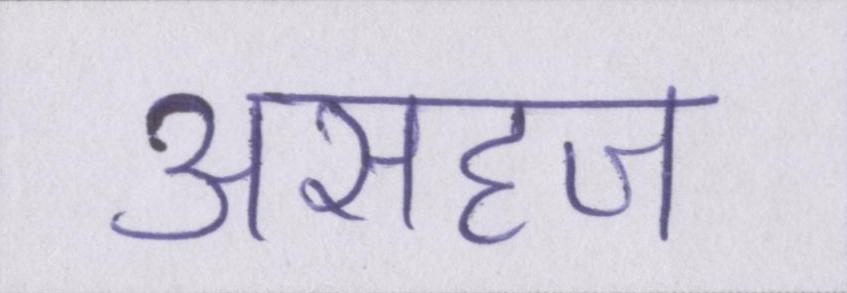 असहज